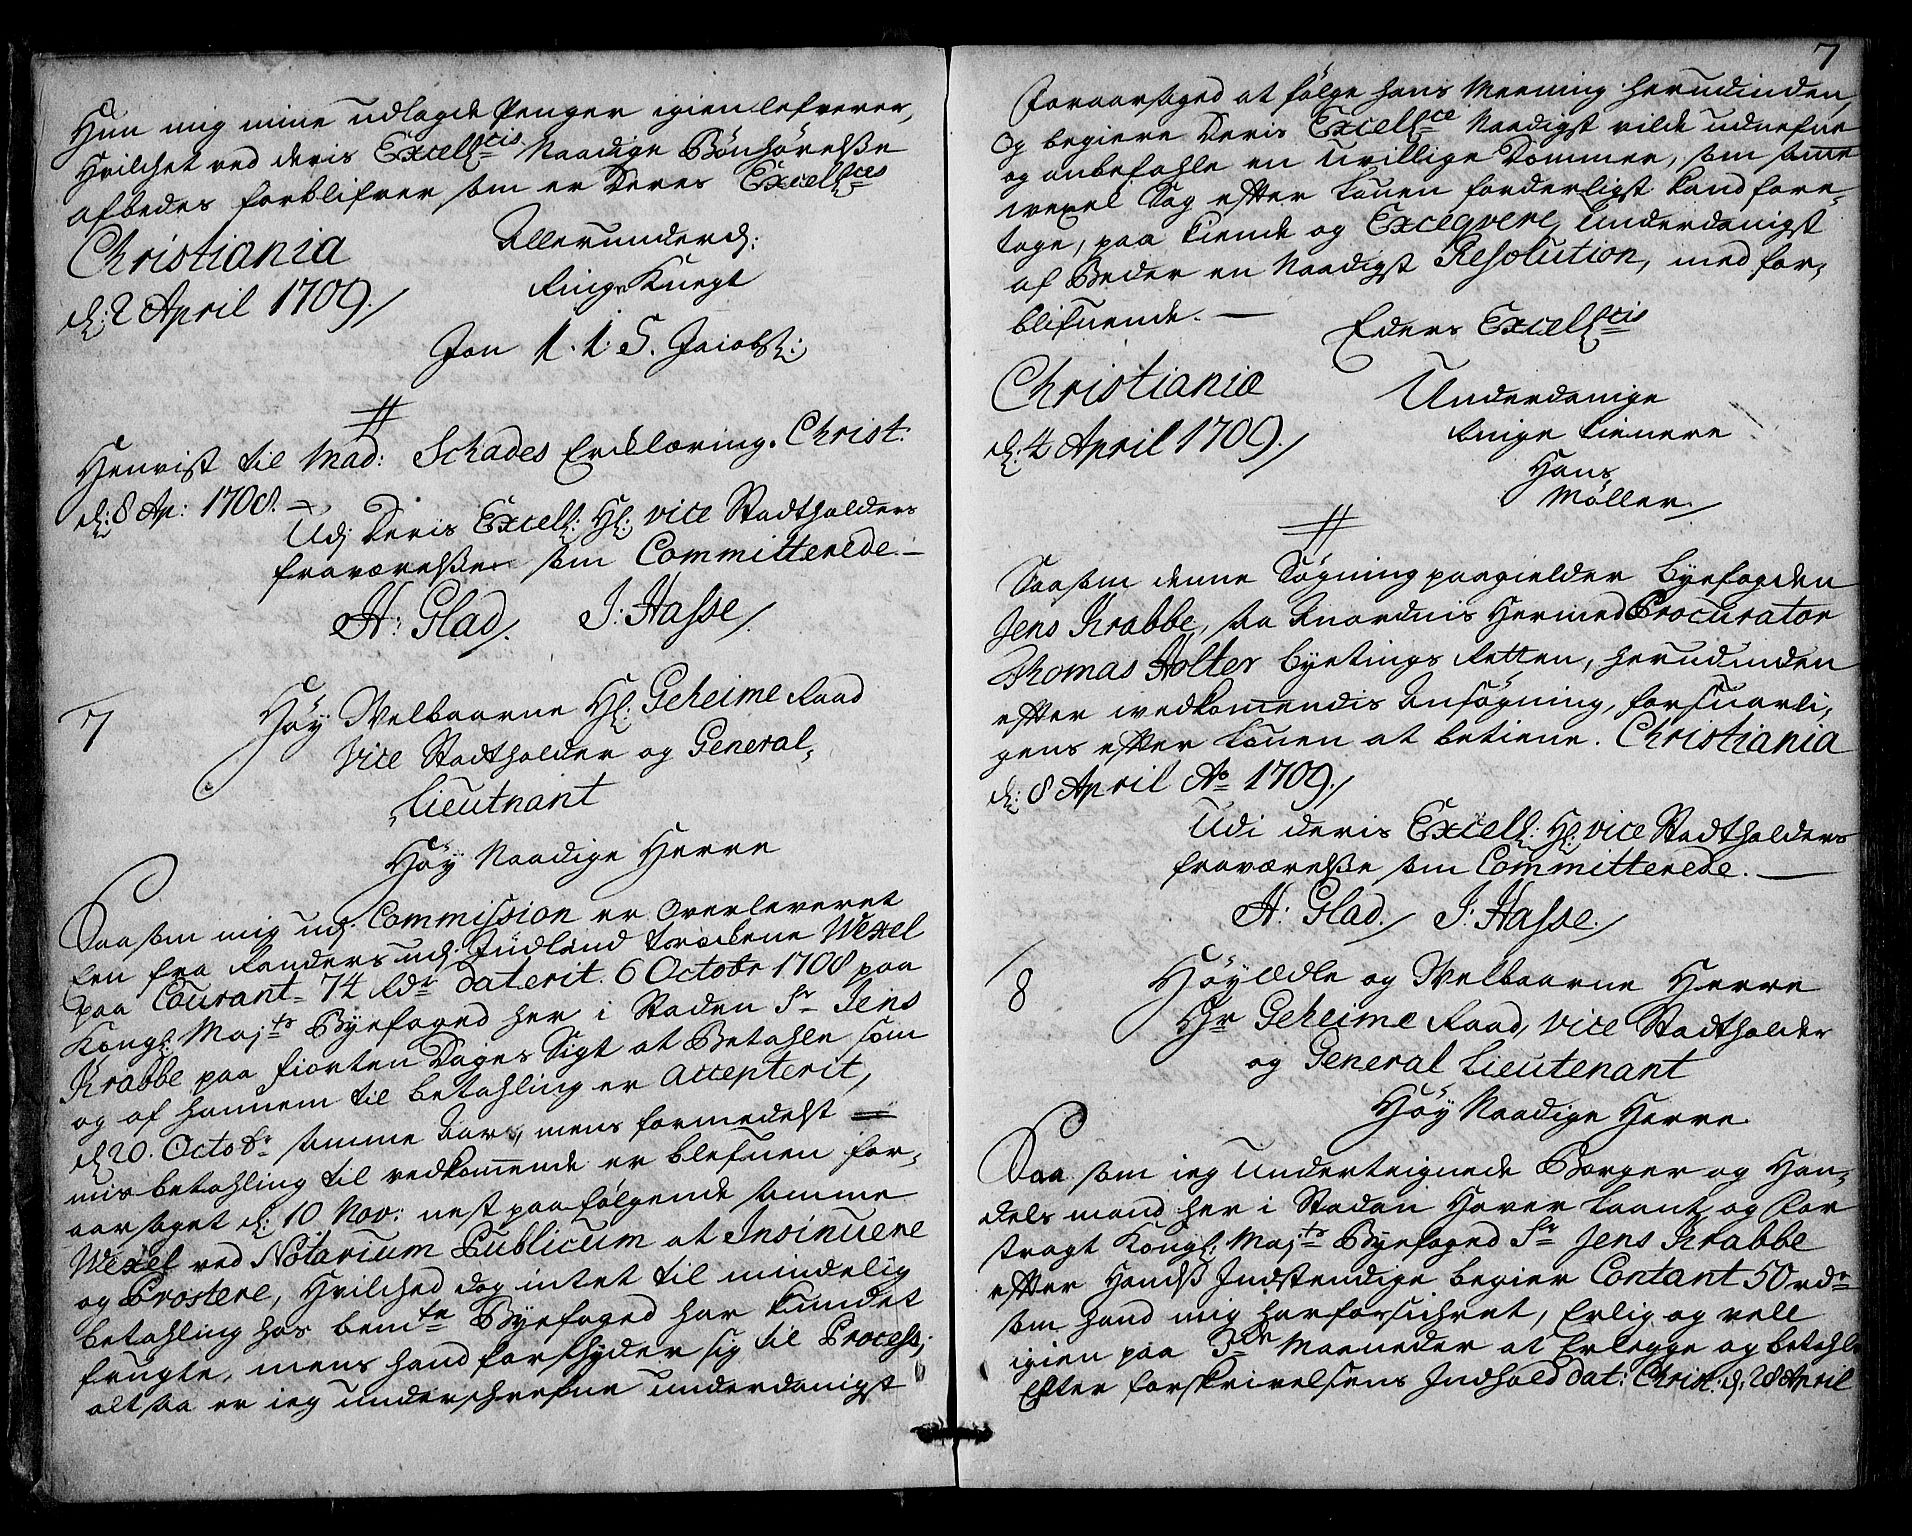 Hun mig mine udlagde Penger igien lefverer,
Hvilchet ved deris Excell:cis Naadige Bønhørelße
afbedes forblifver som er Deres Excell:ces
Christiania
Allerunderd:
d: 2 April 1709.
Ringe Knegt
Jon Jacobs:
Henvist til Mad: Schades Erclæring. Christ:
d: 8 Ap: 1708.
Udj Deris Excell: Hl: vice Stadtholders
fraværelße som Committerede.
H: Glad. J: Hasse.
7
Høy Welbaarne Hl: Geheime Raad
Vice Stadtholder og General
Lieutnant
Høy Naadige Herre
Saasom mig udj Commission er overleveret
een fra Randers udj Jüdland trochene Wexel
paa Courant 74 Rdr daterit 6 Octobr 1708 paa
Kongl: Maj:ts Byefoged her i Staden Sr Jens
Krabbe paa fiorten Dages Sigt at Betahle, som
og af hannem til betahling er Accepterit,
d 20. Octobr samme Aar, mens formedelst
mis betahling til vedkommende er blefuen for-
aarsaget d: 10 Nov: nest paafølgende samme
Wexel ved Notarium Publicum at Insinuere
og Prostere, Hvilched dog intet til mindelig
betahling hos bem:te Byefoged har kundet
frugte, mens hand forschyder sig til Process,
altsaa er ieg underschrefne underdanigst
7
foraarsaged at følge hans Meening herudinden,
Og begiere Deris Excell:ce Naadigst vilde udnefne
og anbefahle en Uvillige Dommer, som samme
wexel Sag efter Louen forderligst kand fore-
tage, paa kiende og Exceqvere, underdanigst
af Beder en Naadigst Resolution, med for-
blifuende.
Eders Excell:cis
Christianiæ
Underdanige
d: 4 April 1709.
Ringe tienere
Hans
Møller.
Saasom denne Søgning paagielder Byefogden
Jens Krabbe, saa Anordnis Hermed Procurator
Thomas Holter Byetings Retten, herudinden
efter wedkomendis Ansøgning, forsuarli-
gens efter Louen at betiene. Christiania
d: 8 April Ao 1709.
Udi deris Excell: Hl: vice Stadtholders
fraværelße som Committerede.
H: Glad. J: Hasse.
8
Høy Ædle og Welbaarne Herre
Hr Geheime Raad, Vice Stadtholder
og General Lieutenant
Høy Naadige Herre.
Saa som ieg Underteignede Borger og Han-
dels mand her i Staden Hafver Laant og for
stragt Kongl: Maj:ts Byefoged Sr Jens Krabbe
efter Handß Indstendige begier Contant 50 rdr
som hand mig har forsichret, Erlig og vell
igien paa 3de Maaneder at Erlegge og betahle
Efter forskrivelsens Indhold dat: Christ: d: 28 April